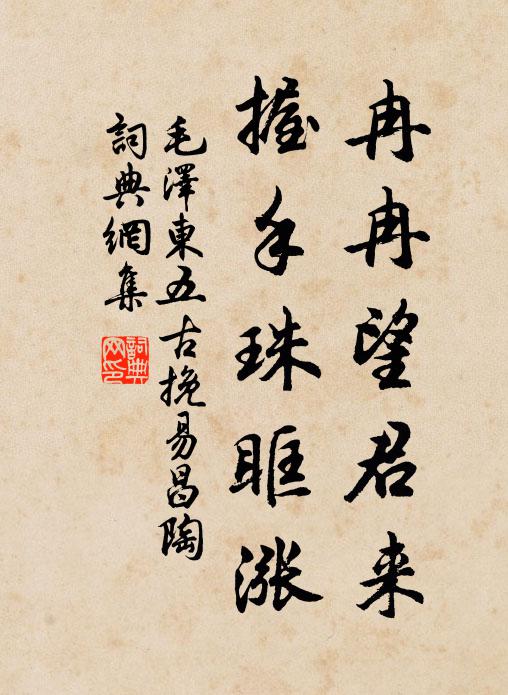 冉冉望君来
握手珠眶漲
毛澤東五古挽易昌陶
詞典網集
詞典網印